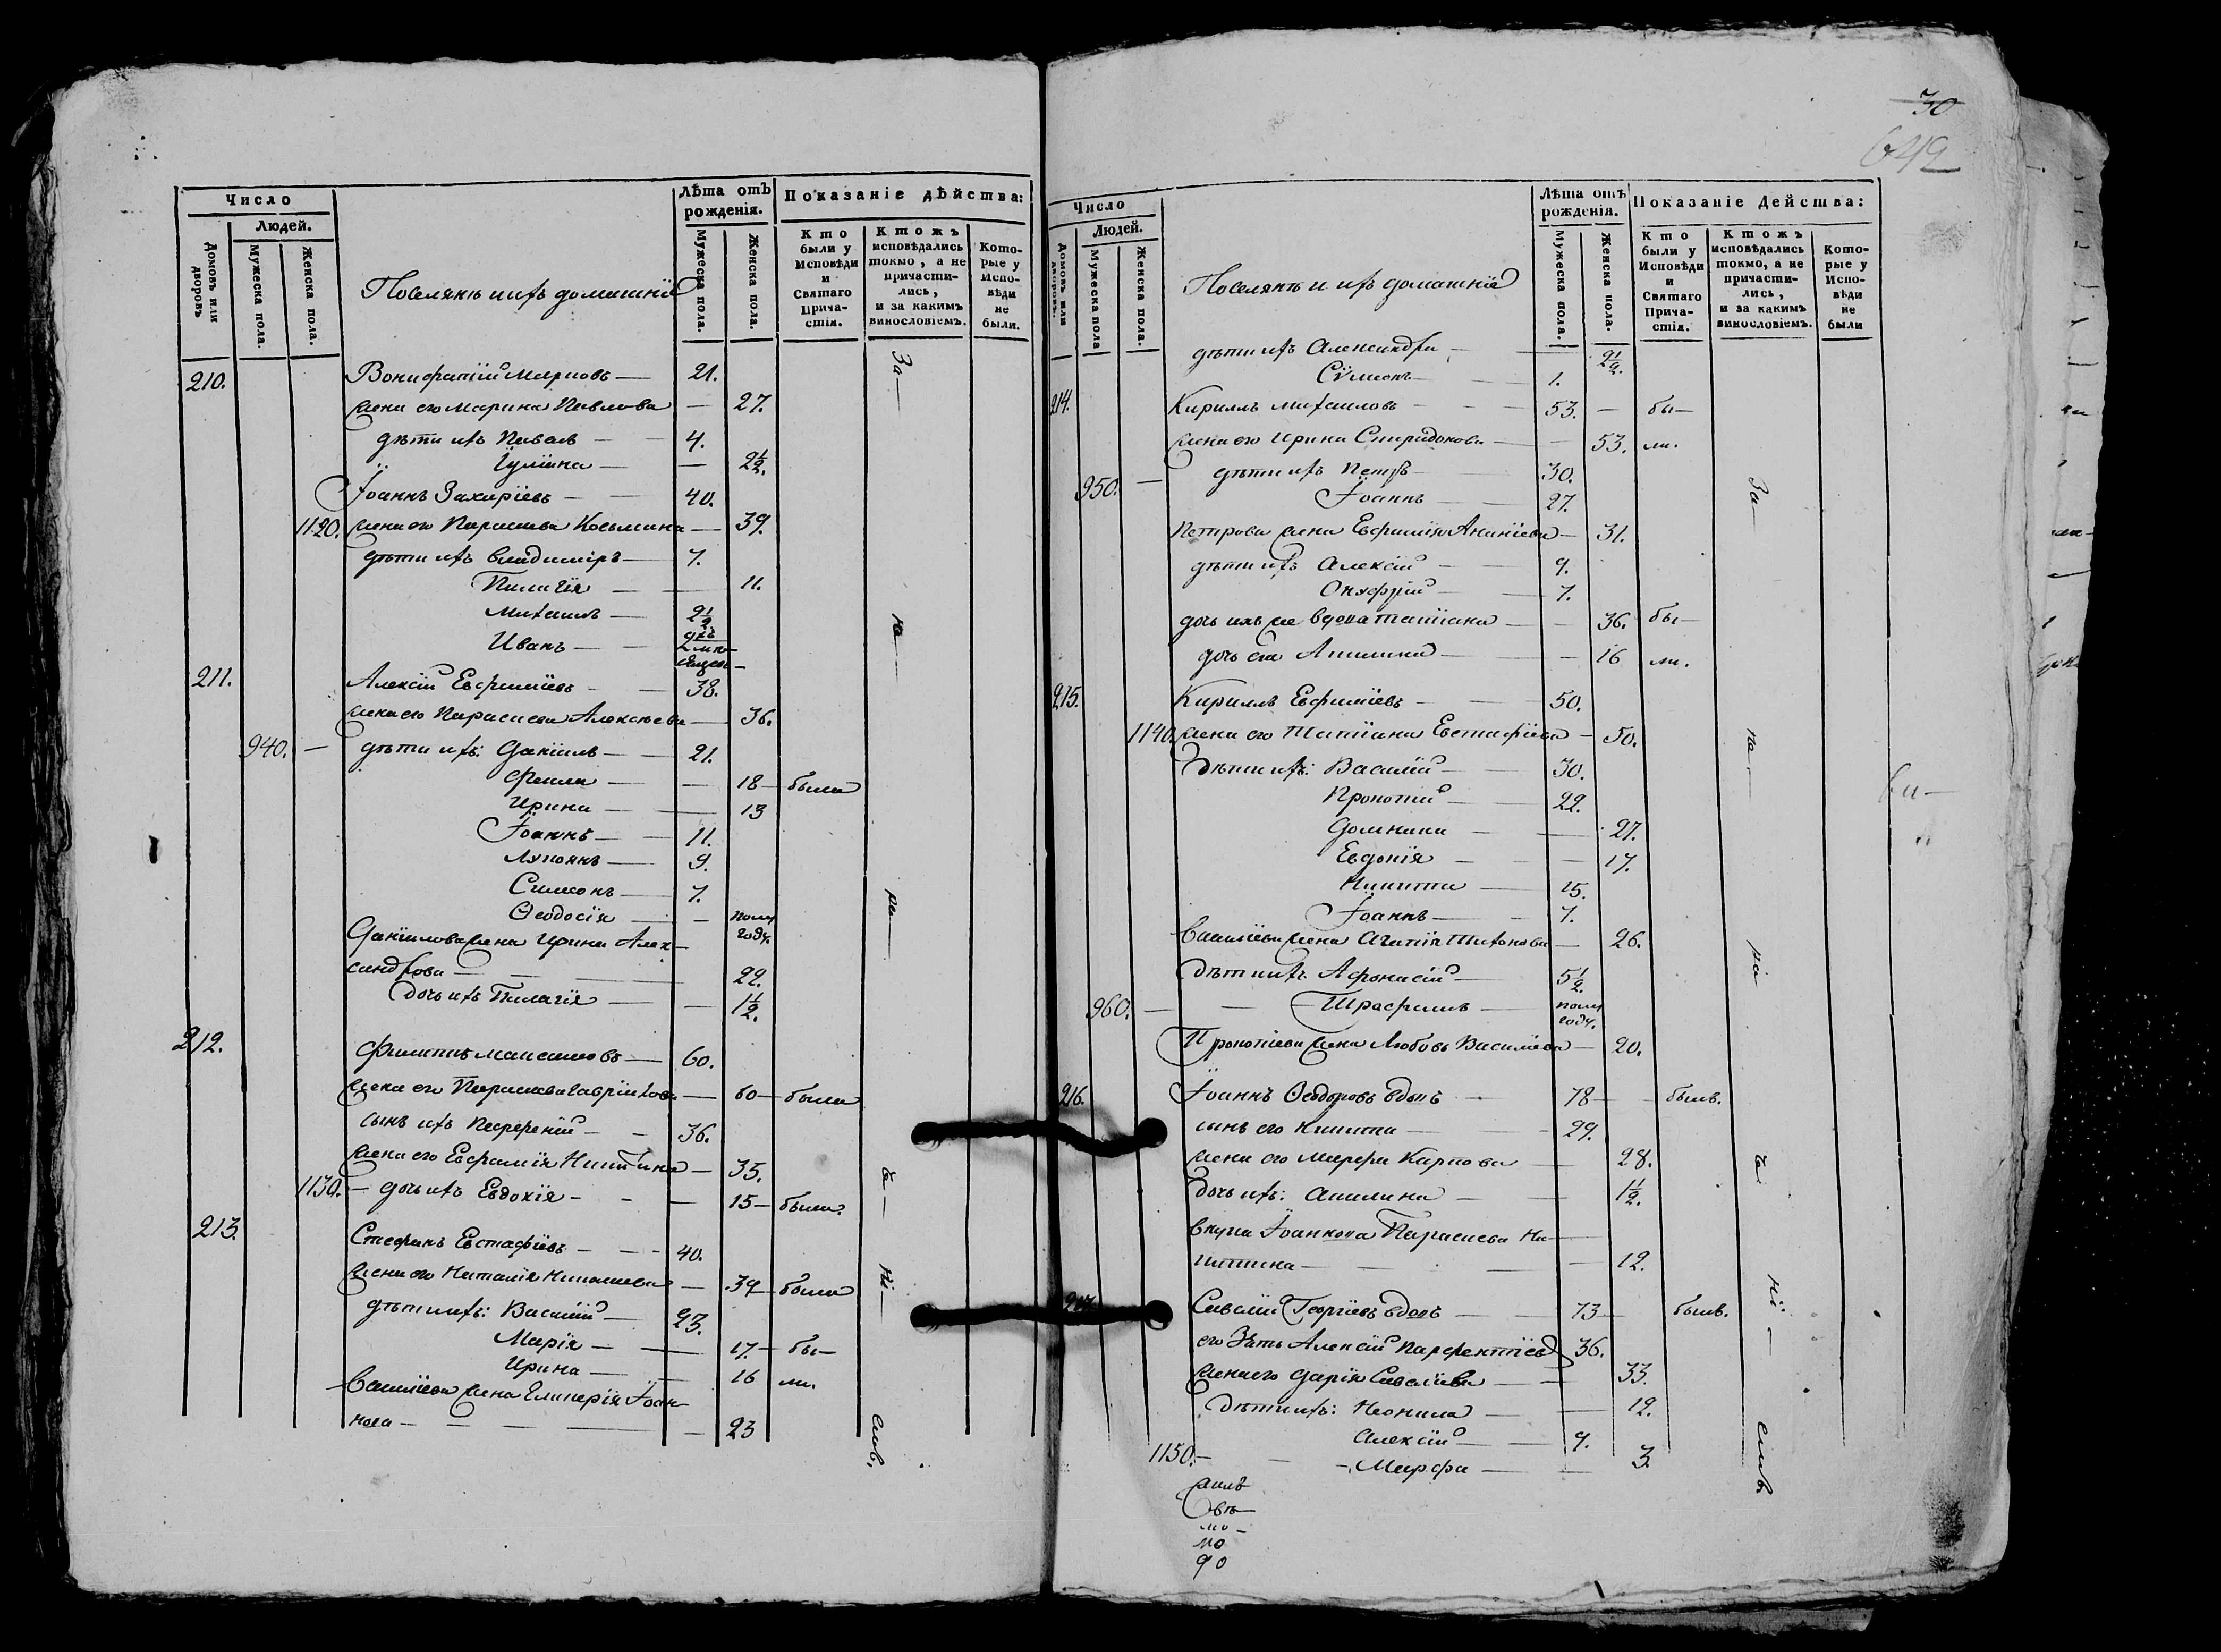 Число
Людей.
Домовъ или дворовъ
Мужеска пола.
Женска пола.
Поселянѣ и ихъ домашніе
Лѣта отъ рожденія.
Мужеска пола.
Женска пола.
Показаніе дѣйства:
Кто были у Исповѣди и Святаго Прича-стія.
Ктожъ исповѣдались токмо, а не причасти-лись, и за какимъ винословіемъ.
Кото-рые у Испо-вѣди не были.
210. Вонифатій Марковъ — 21.
жена его Марина Павлова — 27.
дѣти ихъ Павелъ — 4.
Іуліана — 2½.
Іоаннъ Захаріевъ — 40.
1120. жена его Параскева Косьмина — 39.
дѣти ихъ Владиміръ — 7.
Пилагія — 11.
Михаилъ — 2½
Иванъ —
211. Алексій Евфиміевъ — 38.
жена его Параскева Алексѣева — 36.
940. — дѣти ихъ: Даніилъ — 21.
Фекла — 18 — была
Ирина — 13
Іоаннъ — 11.
Лукіанъ — 9.
Симеонъ — 7.
Ѳеодосія — полу году.
Даніилова жена Ирина Алек-
сандрова — 22.
дочь ихъ Пилагія — 1½.
212. Филиппъ Максимовъ — 60.
жена его Параскева Гавріилова — 60 — была
сынъ ихъ Парфеній — 36.
жена его Евфимія Никитина — 35.
1130. — дочь ихъ Евдокія — 15 — была.
213. Стефанъ Евстафіевъ — 40.
жена его Наталія Николаева — 39 — была
дѣти ихъ: Василій — 23.
Марія — 17 — бы-
Ирина — 16 ли.
Василіева жена Гликерія Іоан-
нова — 23
За — не — — словъ.
30
649
Число
Людей.
Домовъ или дворовъ.
Мужеска пола
Женска пола.
Поселянѣ и ихъ домашніе
Лѣта отъ рожденія.
Мужеска пола.
Женска пола.
Показаніе Действа:
Кто были у Исповѣди и Святаго Прича-стія.
Ктожъ исповѣдались токмо, а не причасти-лись, и за какимъ винословіемъ.
Кото-рые у Испо-вѣди не были
дѣти ихъ Александра — 2½.
Сѵмеонъ — 1.
214. Кириллъ Михаиловъ — 53. — бы-
жена его Ирина Спиридонова — 53. ли.
950. — дѣти ихъ Петръ — 30.
Іоаннъ — 27.
Петрова жена Евфимія Ананіева — 31.
дѣти ихъ Алексій — 9.
Онуфрій — 7.
дочь ихъ же вдова Татіана — 36. бы-
дочь ея Акилина — 16 ли.
215. Кириллъ Евфиміевъ — 50.
1140. жена его Татіана Евстафіева — 50.
Дѣти ихъ: Василій — 30.
Прокопій — 22.
Домника — 27.
Евдокія — 17.
Никита — 15.
Іоаннъ — 7.
Василіева жена Агапія Тихонова — 26.
Дѣти ихъ Афонасій — 5½.
960. — Трофимъ — полу году.
Прокопіева жена Любовь Василіева — 20.
216. Іоаннъ Ѳеодоровъ вдовъ — 78 — былъ.
сынъ его Никита — 29.
жена его Марфа Карпова — 28.
дочь ихъ: Акилина — 1½.
внука Іоаннова Параскева Ни-
китина — 12.
217. Савелій Георгіевъ вдовъ — 73 — былъ.
его зять Алексій Парфентіевъ 36.
жена его Дарія Савеліева — 33.
Дѣти ихъ: Неонила — 12.
Алексій — 9.
1150. — Марфа — 3.
За — не — — словъ